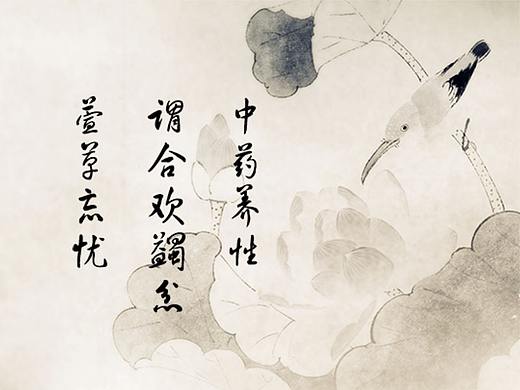 中药养性
谓合欢蠲忿
萱草忘忧